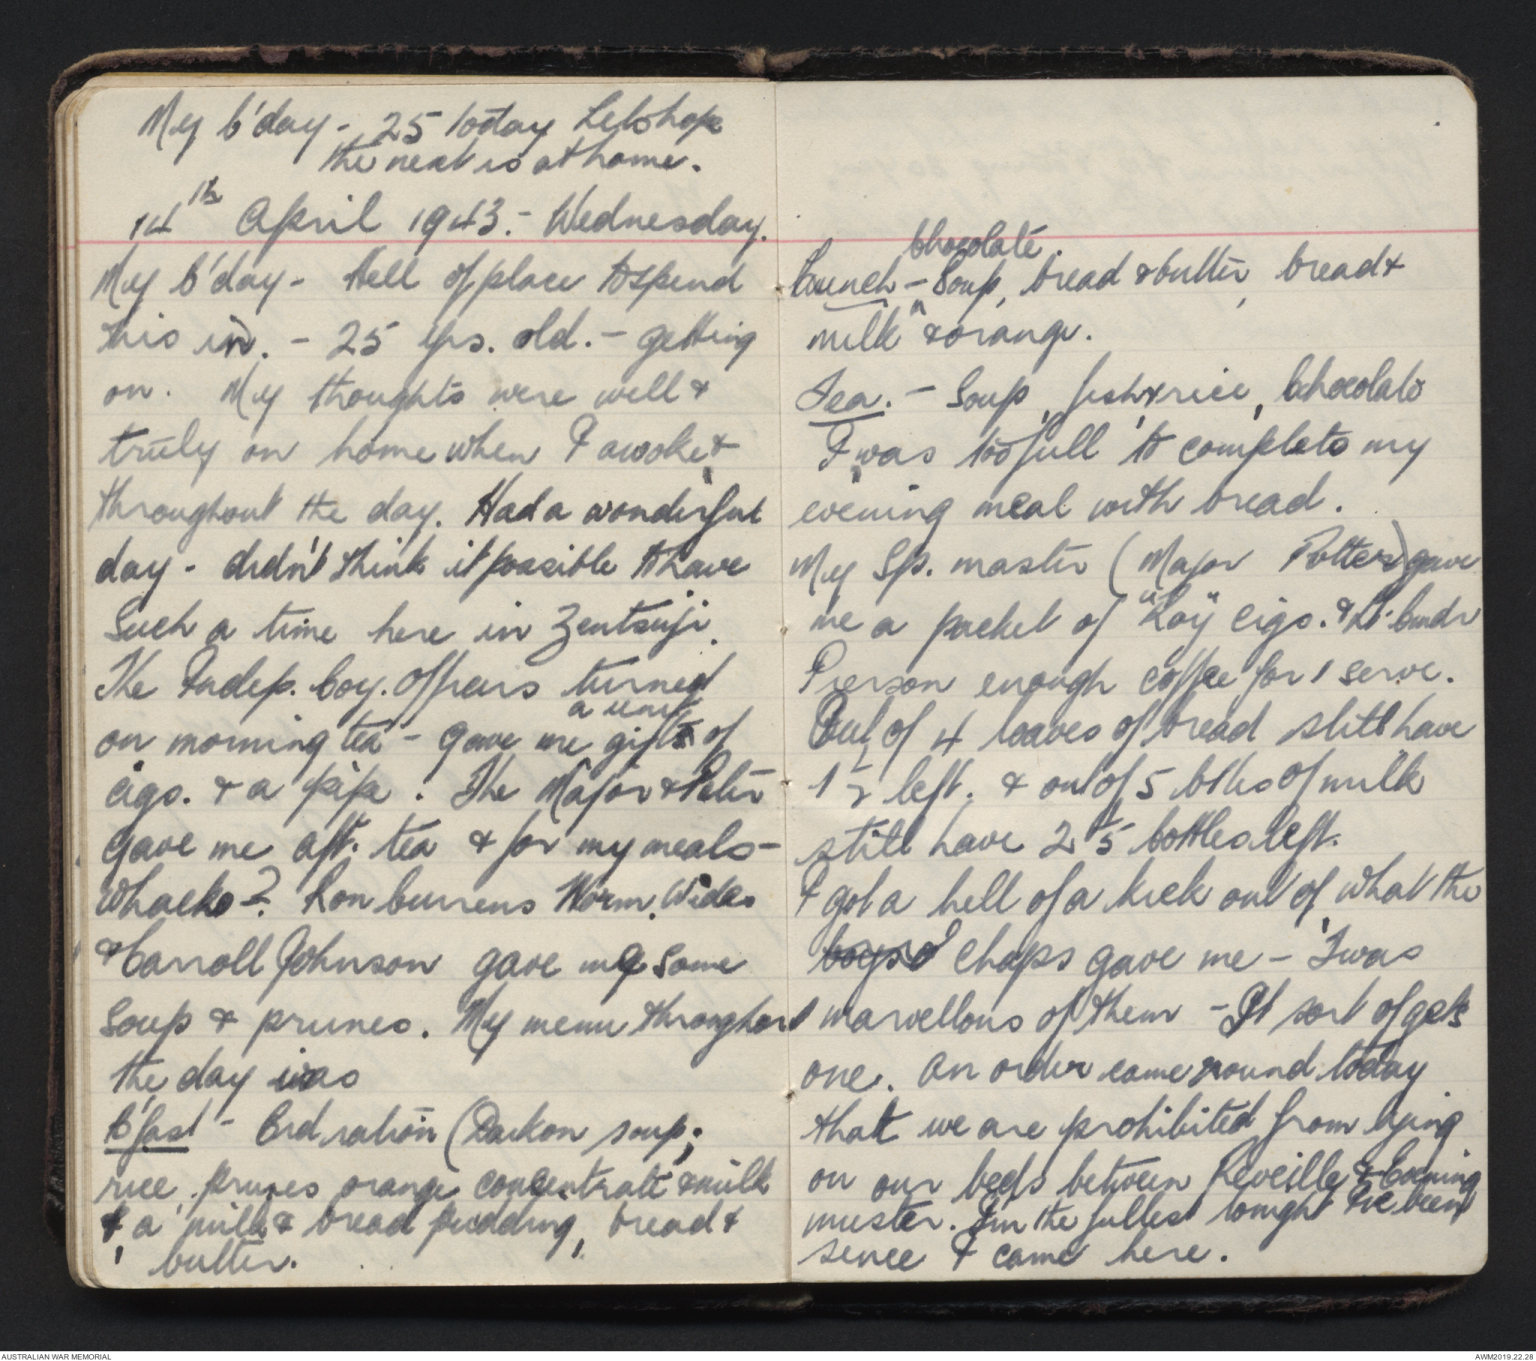 My b'day - 25 today Let's hope
the next is at home.
14th April 1943. - Wednesday.
My b'day - Hell of place to spend
this in. - 25 yrs. old. - getting
on. My thoughts were well &
truly on home when I awoke &
throughout the day. Had a wonderful
day - didn't think it possible to have
such a time here in Zentsuji.
The Indep. Coy. Officers turned
a unit
on morning tea - gave me gift of
cigs. & a pipe. The Major & Peter
gave me aft. tea & for my meals -
Whacko? Ron Burrens Norm. Wides
& Carroll Johnson gave me some
soup & prunes. My menu throughout
the day was
B'fast - Ord ration (Daikon soup,
rice, prunes orange concentrate & milk
& a milk & bread pudding, bread &
butter.
chocolate
Lunch - Soup, bread & butter, bread &
milk & orange.
Tea. - Soup, fish & rice, chocolate
I was too full to complete my
evening meal with bread.
My Sp. master (Major Potter) gave
me a packet of "Loy" cigs. & Lt. Cmdr
Pierson enough coffee for 1 serve.
Out of 4 loaves of bread still have
1 1/2 left. & out of 5 btles of milk
still have 2 1/5 bottles left.
I got a hell of a kick out of what the
boys chaps gave me - 'Twas
marvellous of them - It sort of gets
one. An order came round today
that we are prohibited from lying
on our beds between Reveille & Evening
muster. I'm the fullest tonight I've been
since I came here.
AUSTRALIAN WAR MEMORIAL
AWM2019.22.28